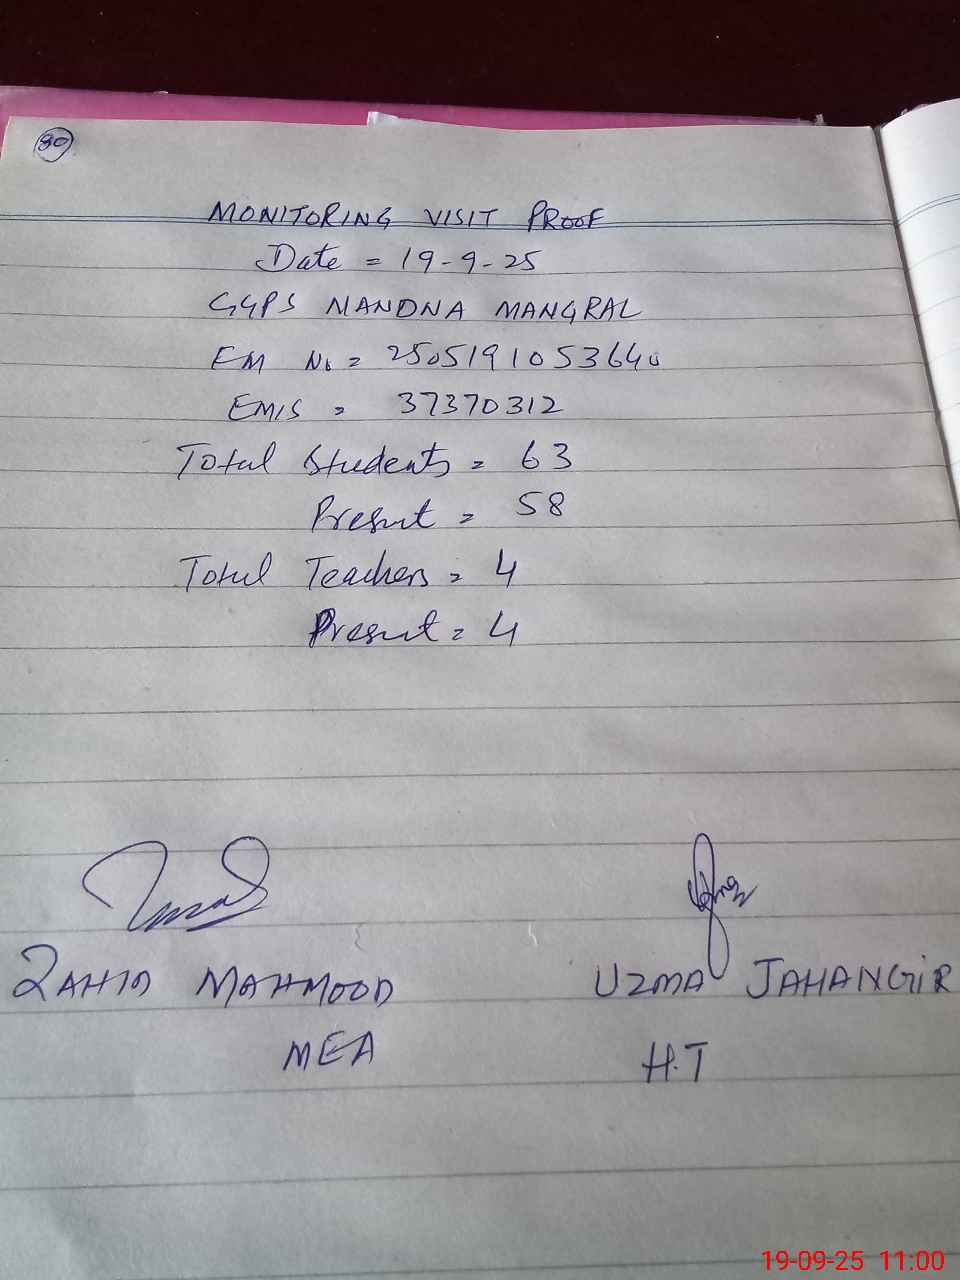 80
MONITORING VISIT PROOF
Date = 19-9-25
GGPS NANDNA MANGRAL
EM No = 2505191053640
EMIS = 37370312
Total Students = 63
Present = 58
Total Teachers = 4
Present = 4
ZAHID MAHMOOD UZMA JAHANGIR
MEA H.T
19-09-25 11:00